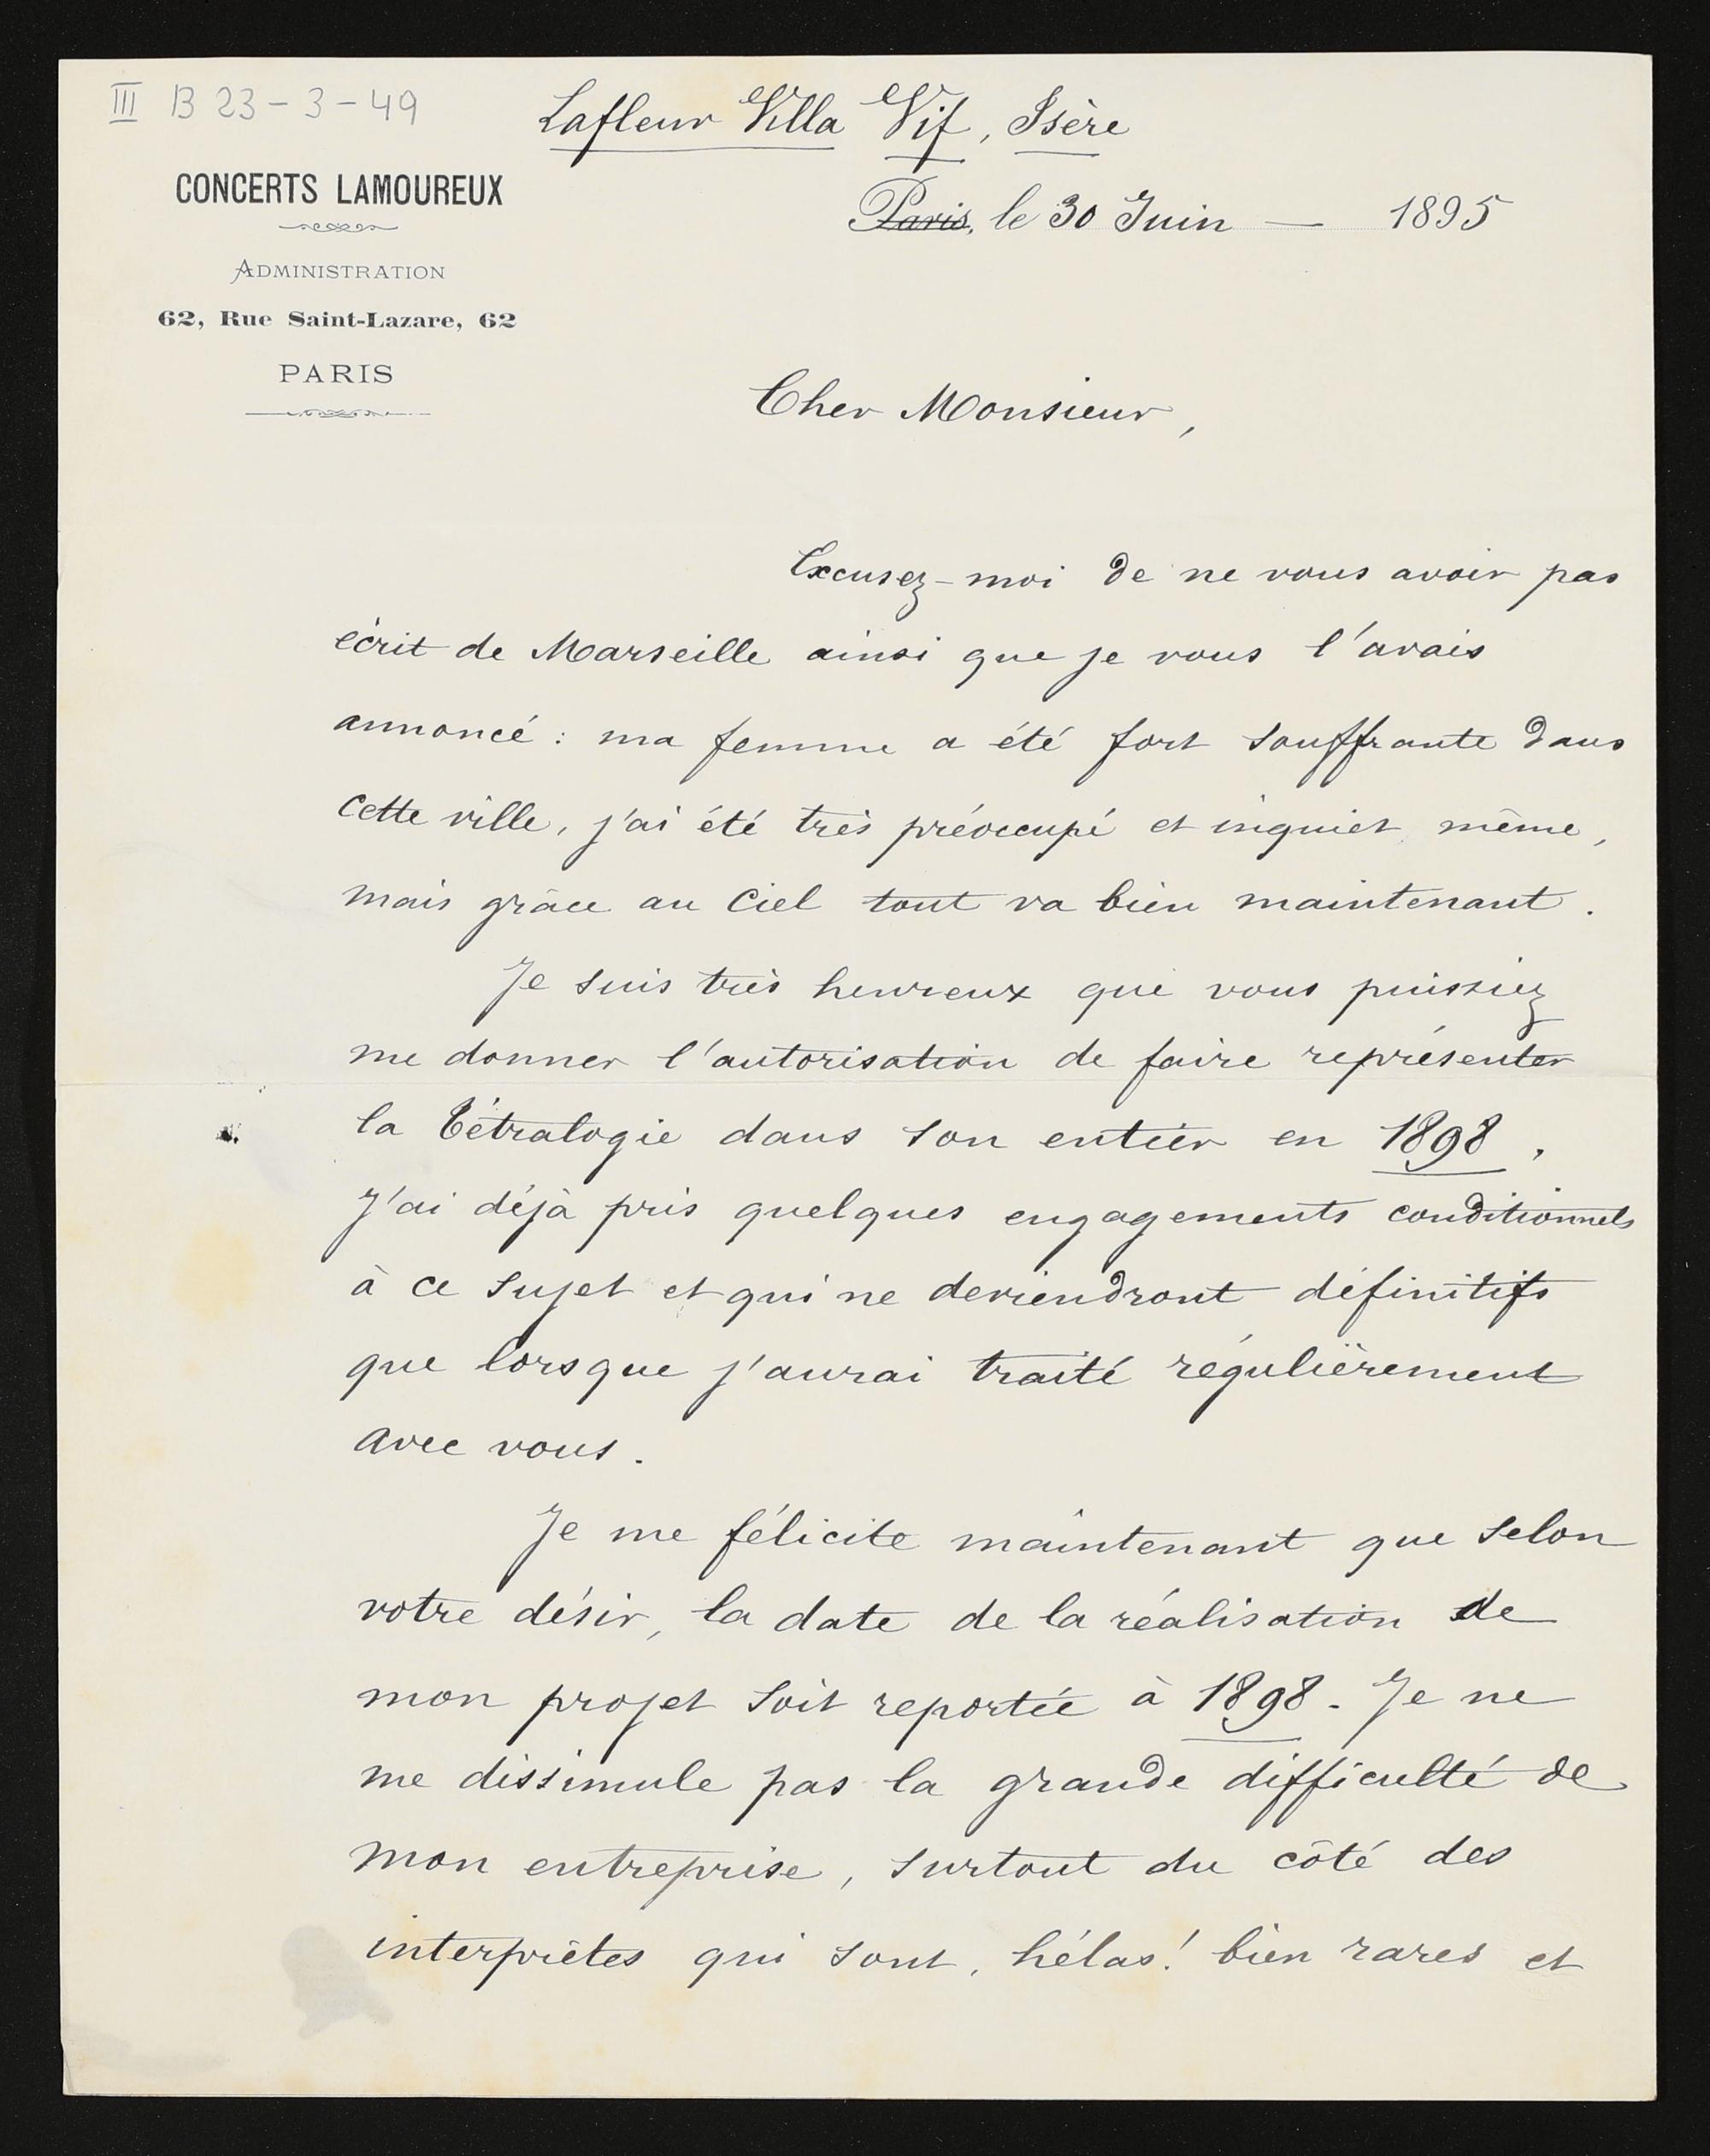 III B 23-3-49
Lafleur Villa Vif, Isère
CONCERTS LAMOUREUX
ADMINISTRATION
62, Rue Saint-Lazare, 62
PARIS
Paris, le 30 Juin — 1895
Cher Monsieur,
Excusez-moi de ne vous avoir pas
écrit de Marseille ainsi que je vous l'avais
annoncé : ma femme a été fort souffrante dans
cette ville, j'ai été très préoccupé et inquiet même,
mais grâce au Ciel tout va bien maintenant.
Je suis très heureux que vous puissiez
me donner l'autorisation de faire représenter
la Tétralogie dans son entier en 1898,
J'ai déjà pris quelques engagements conditionnels
à ce sujet et qui ne deviendront définitifs
que lorsque j'aurai traité régulièrement
avec vous.
Je me félicite maintenant que selon
votre désir, la date de la réalisation de
mon projet soit reportée à 1898. Je ne
me dissimule pas la grande difficulté de
mon entreprise, surtout du côté des
interprètes qui sont, hélas! bien rares et